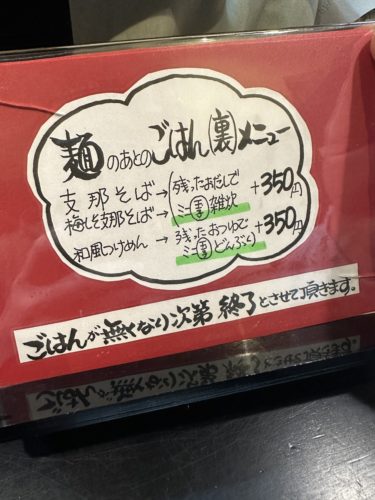 麺のあとのごはん裏メニュー
支那そば→
梅しそ支那そば→
残ったおだしで
ミニ 雑炊
+350円
和風つけめん→
残ったおつゆで
ミニ どんぶり
+350円
ごはんが無くなり次第終了とさせて頂きます。